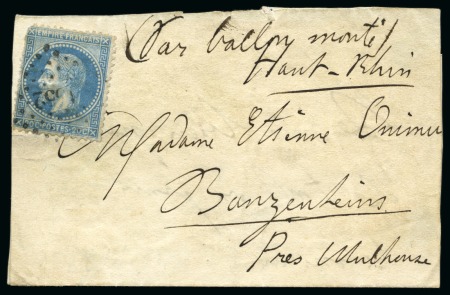 EMPIRE FRANÇAIS
Par ballon monté
Haut-Rhin
Madame Etienne
Banzenheins
Près Mulhouse